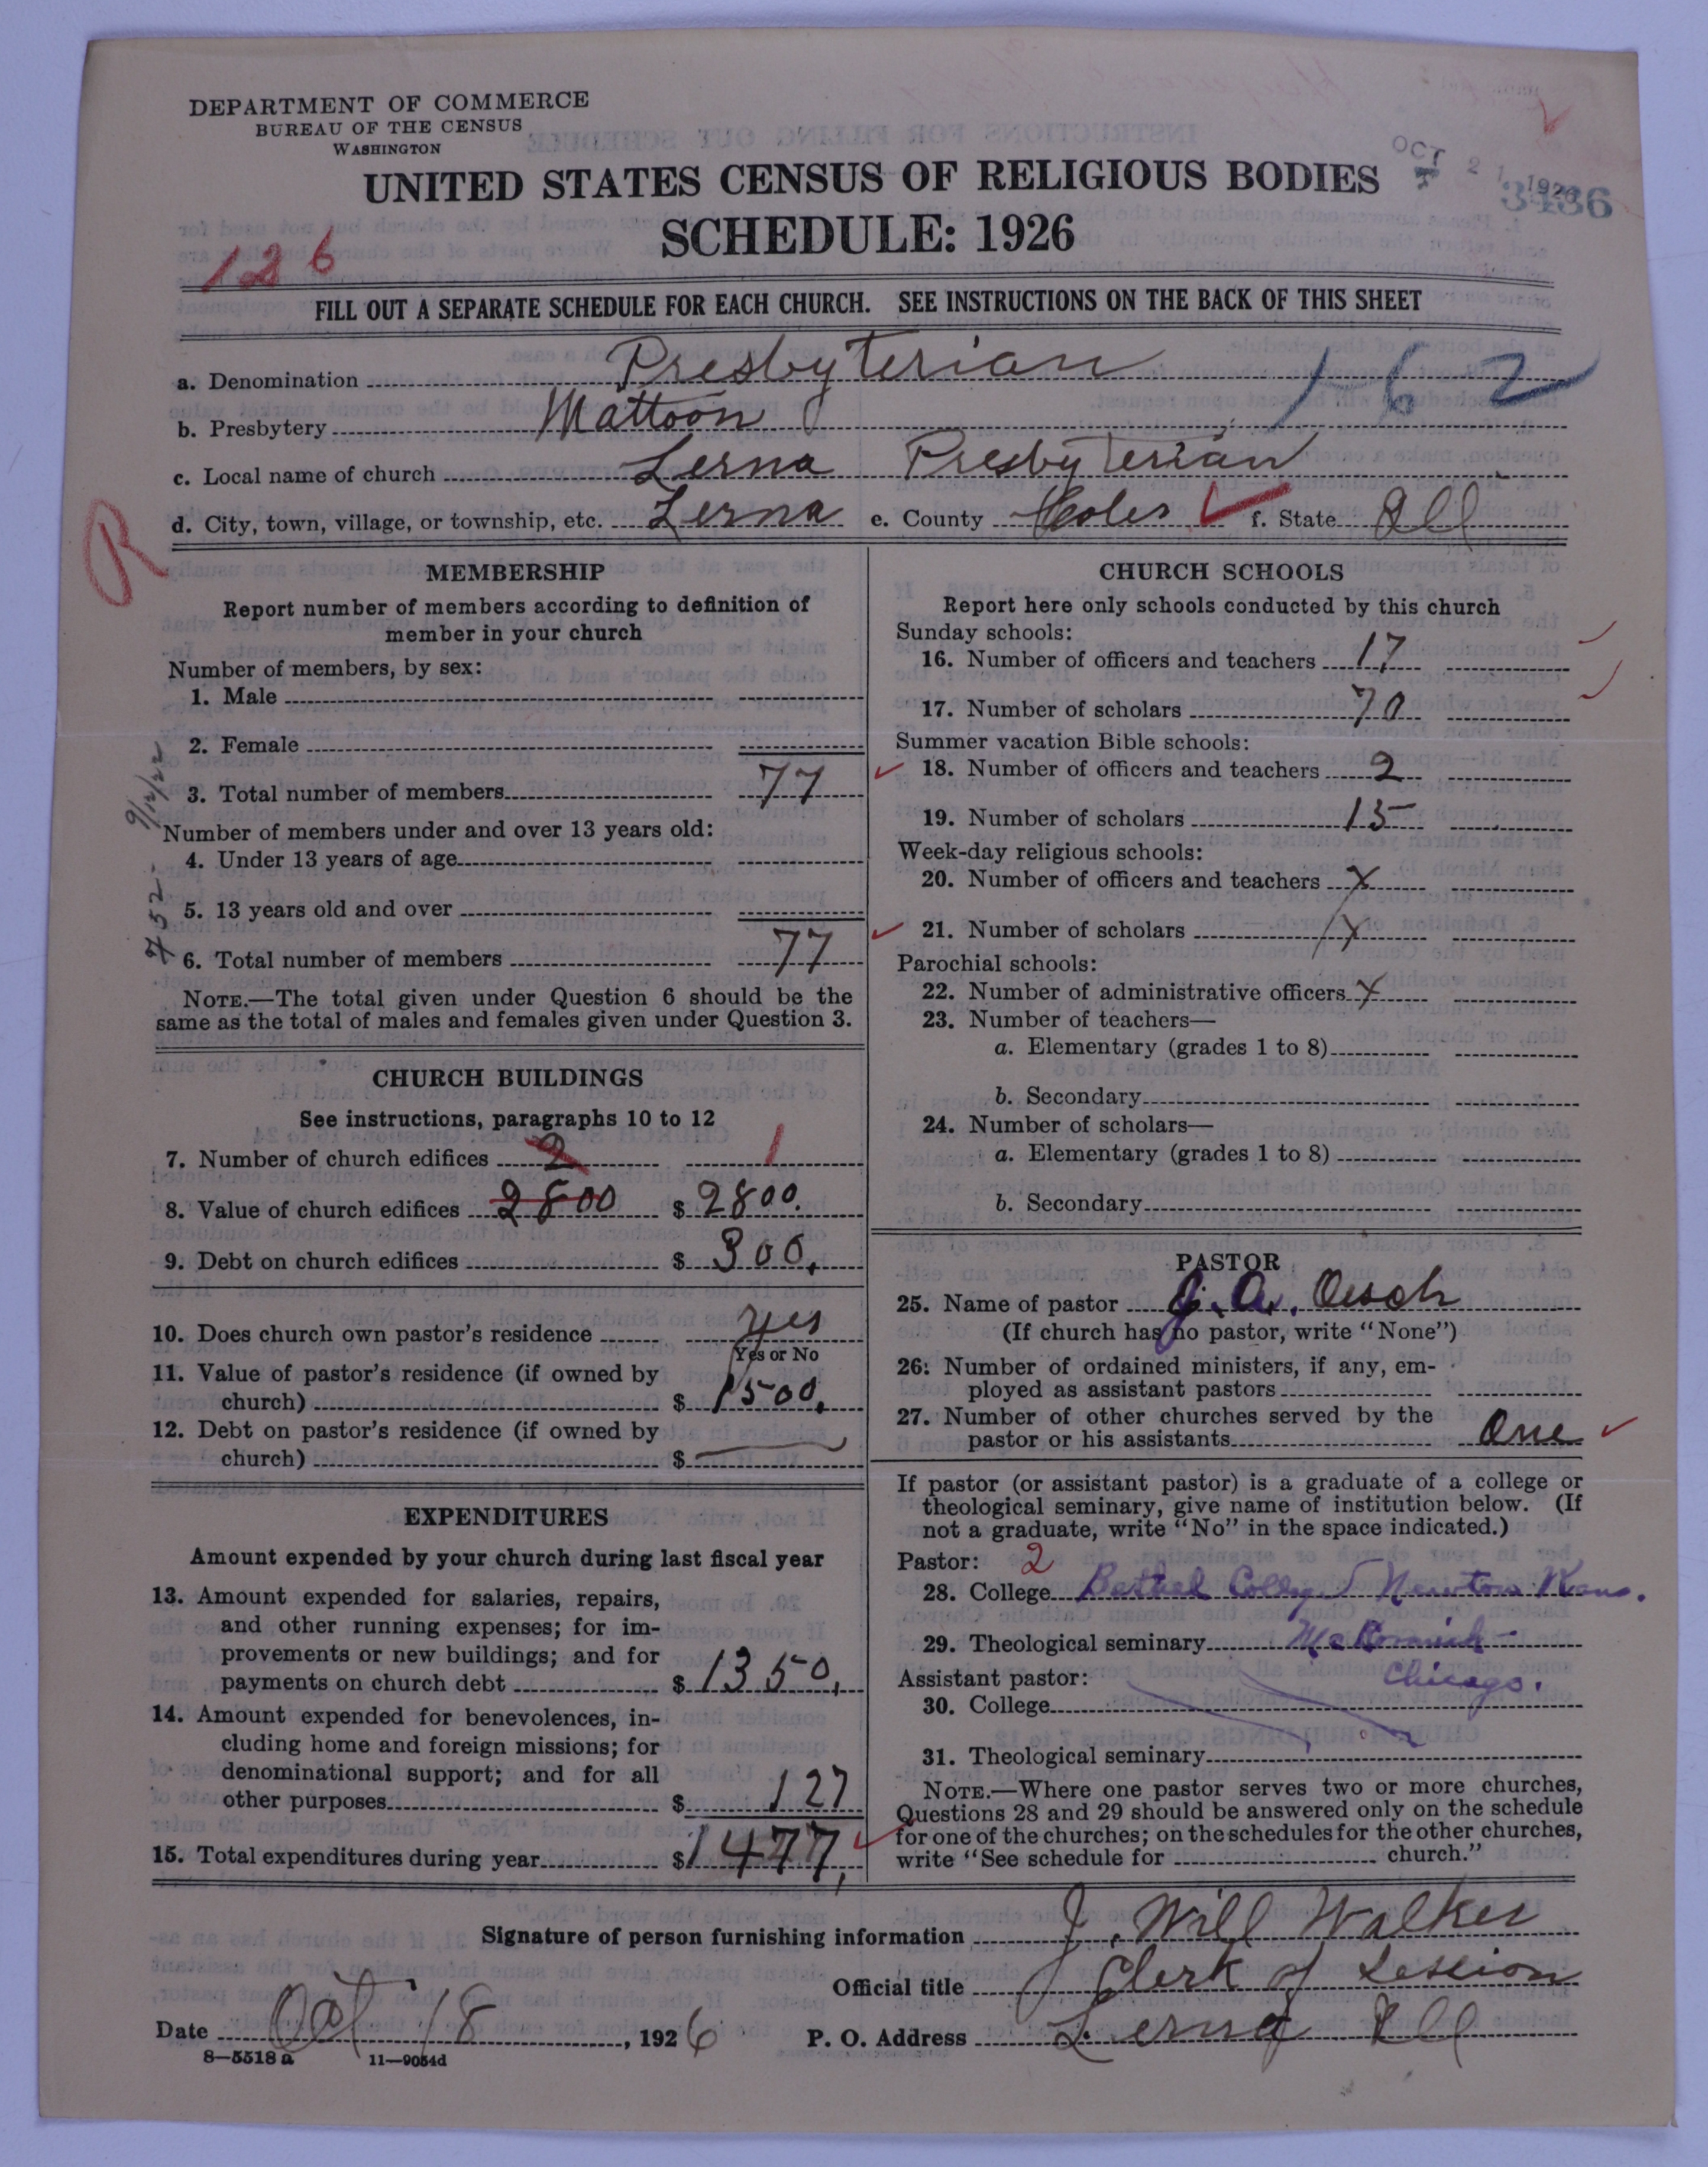 DEPARTMENT OF COMMERCE
BUREAU OF THE CENSUS
WASHINGTON
UNITED STATES CENSUS OF RELIGIOUS BODIES
SCHEDULE: 1926
OCT 21 1926
3436
126
FILL OUT A SEPARATE SCHEDULE FOR EACH CHURCH. SEE INSTRUCTIONS ON THE BACK OF THIS SHEET
a. Denomination Presbyterian 162
b. Presbytery Mattoon
c. Local name of church Lerna Presbyterian
d. City, town, village, or township, etc. Lerna e. County Coles f. State Ill
R
MEMBERSHIP
Report number of members according to definition of
member in your church
Number of members, by sex:
1. Male
2. Female
3. Total number of members 77
Number of members under and over 13 years old:
4. Under 13 years of age
5. 13 years old and over
6. Total number of members 77
NOTE.—The total given under Question 6 should be the
same as the total of males and females given under Question 3.
CHURCH BUILDINGS
See instructions, paragraphs 10 to 12
7. Number of church edifices 2 1
8. Value of church edifices 2800 $ 2800.
9. Debt on church edifices $ 300.
10. Does church own pastor's residence yes
Yes or No
11. Value of pastor's residence (if owned by
church) $ 1500.
12. Debt on pastor's residence (if owned by
church) $
EXPENDITURES
Amount expended by your church during last fiscal year
13. Amount expended for salaries, repairs,
and other running expenses; for im-
provements or new buildings; and for
payments on church debt $ 1350.
14. Amount expended for benevolences, in-
cluding home and foreign missions; for
denominational support; and for all
other purposes $ 127
15. Total expenditures during year $ 1477.
CHURCH SCHOOLS
Report here only schools conducted by this church
Sunday schools:
16. Number of officers and teachers 17
17. Number of scholars 70
Summer vacation Bible schools:
18. Number of officers and teachers 2
19. Number of scholars 15
Week-day religious schools:
20. Number of officers and teachers X
21. Number of scholars X
Parochial schools:
22. Number of administrative officers X
23. Number of teachers—
a. Elementary (grades 1 to 8)
b. Secondary
24. Number of scholars—
a. Elementary (grades 1 to 8)
b. Secondary
PASTOR
25. Name of pastor J. A. Oesch
(If church has no pastor, write "None")
26. Number of ordained ministers, if any, em-
ployed as assistant pastors
27. Number of other churches served by the
pastor or his assistants One
If pastor (or assistant pastor) is a graduate of a college or
theological seminary, give name of institution below. (If
not a graduate, write "No" in the space indicated.)
Pastor: 2
28. College Bethel Newton Kans.
29. Theological seminary McCormick
Chicago.
Assistant pastor:
30. College
31. Theological seminary
NOTE.—Where one pastor serves two or more churches,
Questions 28 and 29 should be answered only on the schedule
for one of the churches; on the schedules for the other churches,
write "See schedule for church."
Signature of person furnishing information J. Will Walker
Official title Clerk of Session
Date Oct 18, 1926 P. O. Address Lerna Ill
8—5518 a 11—9054d